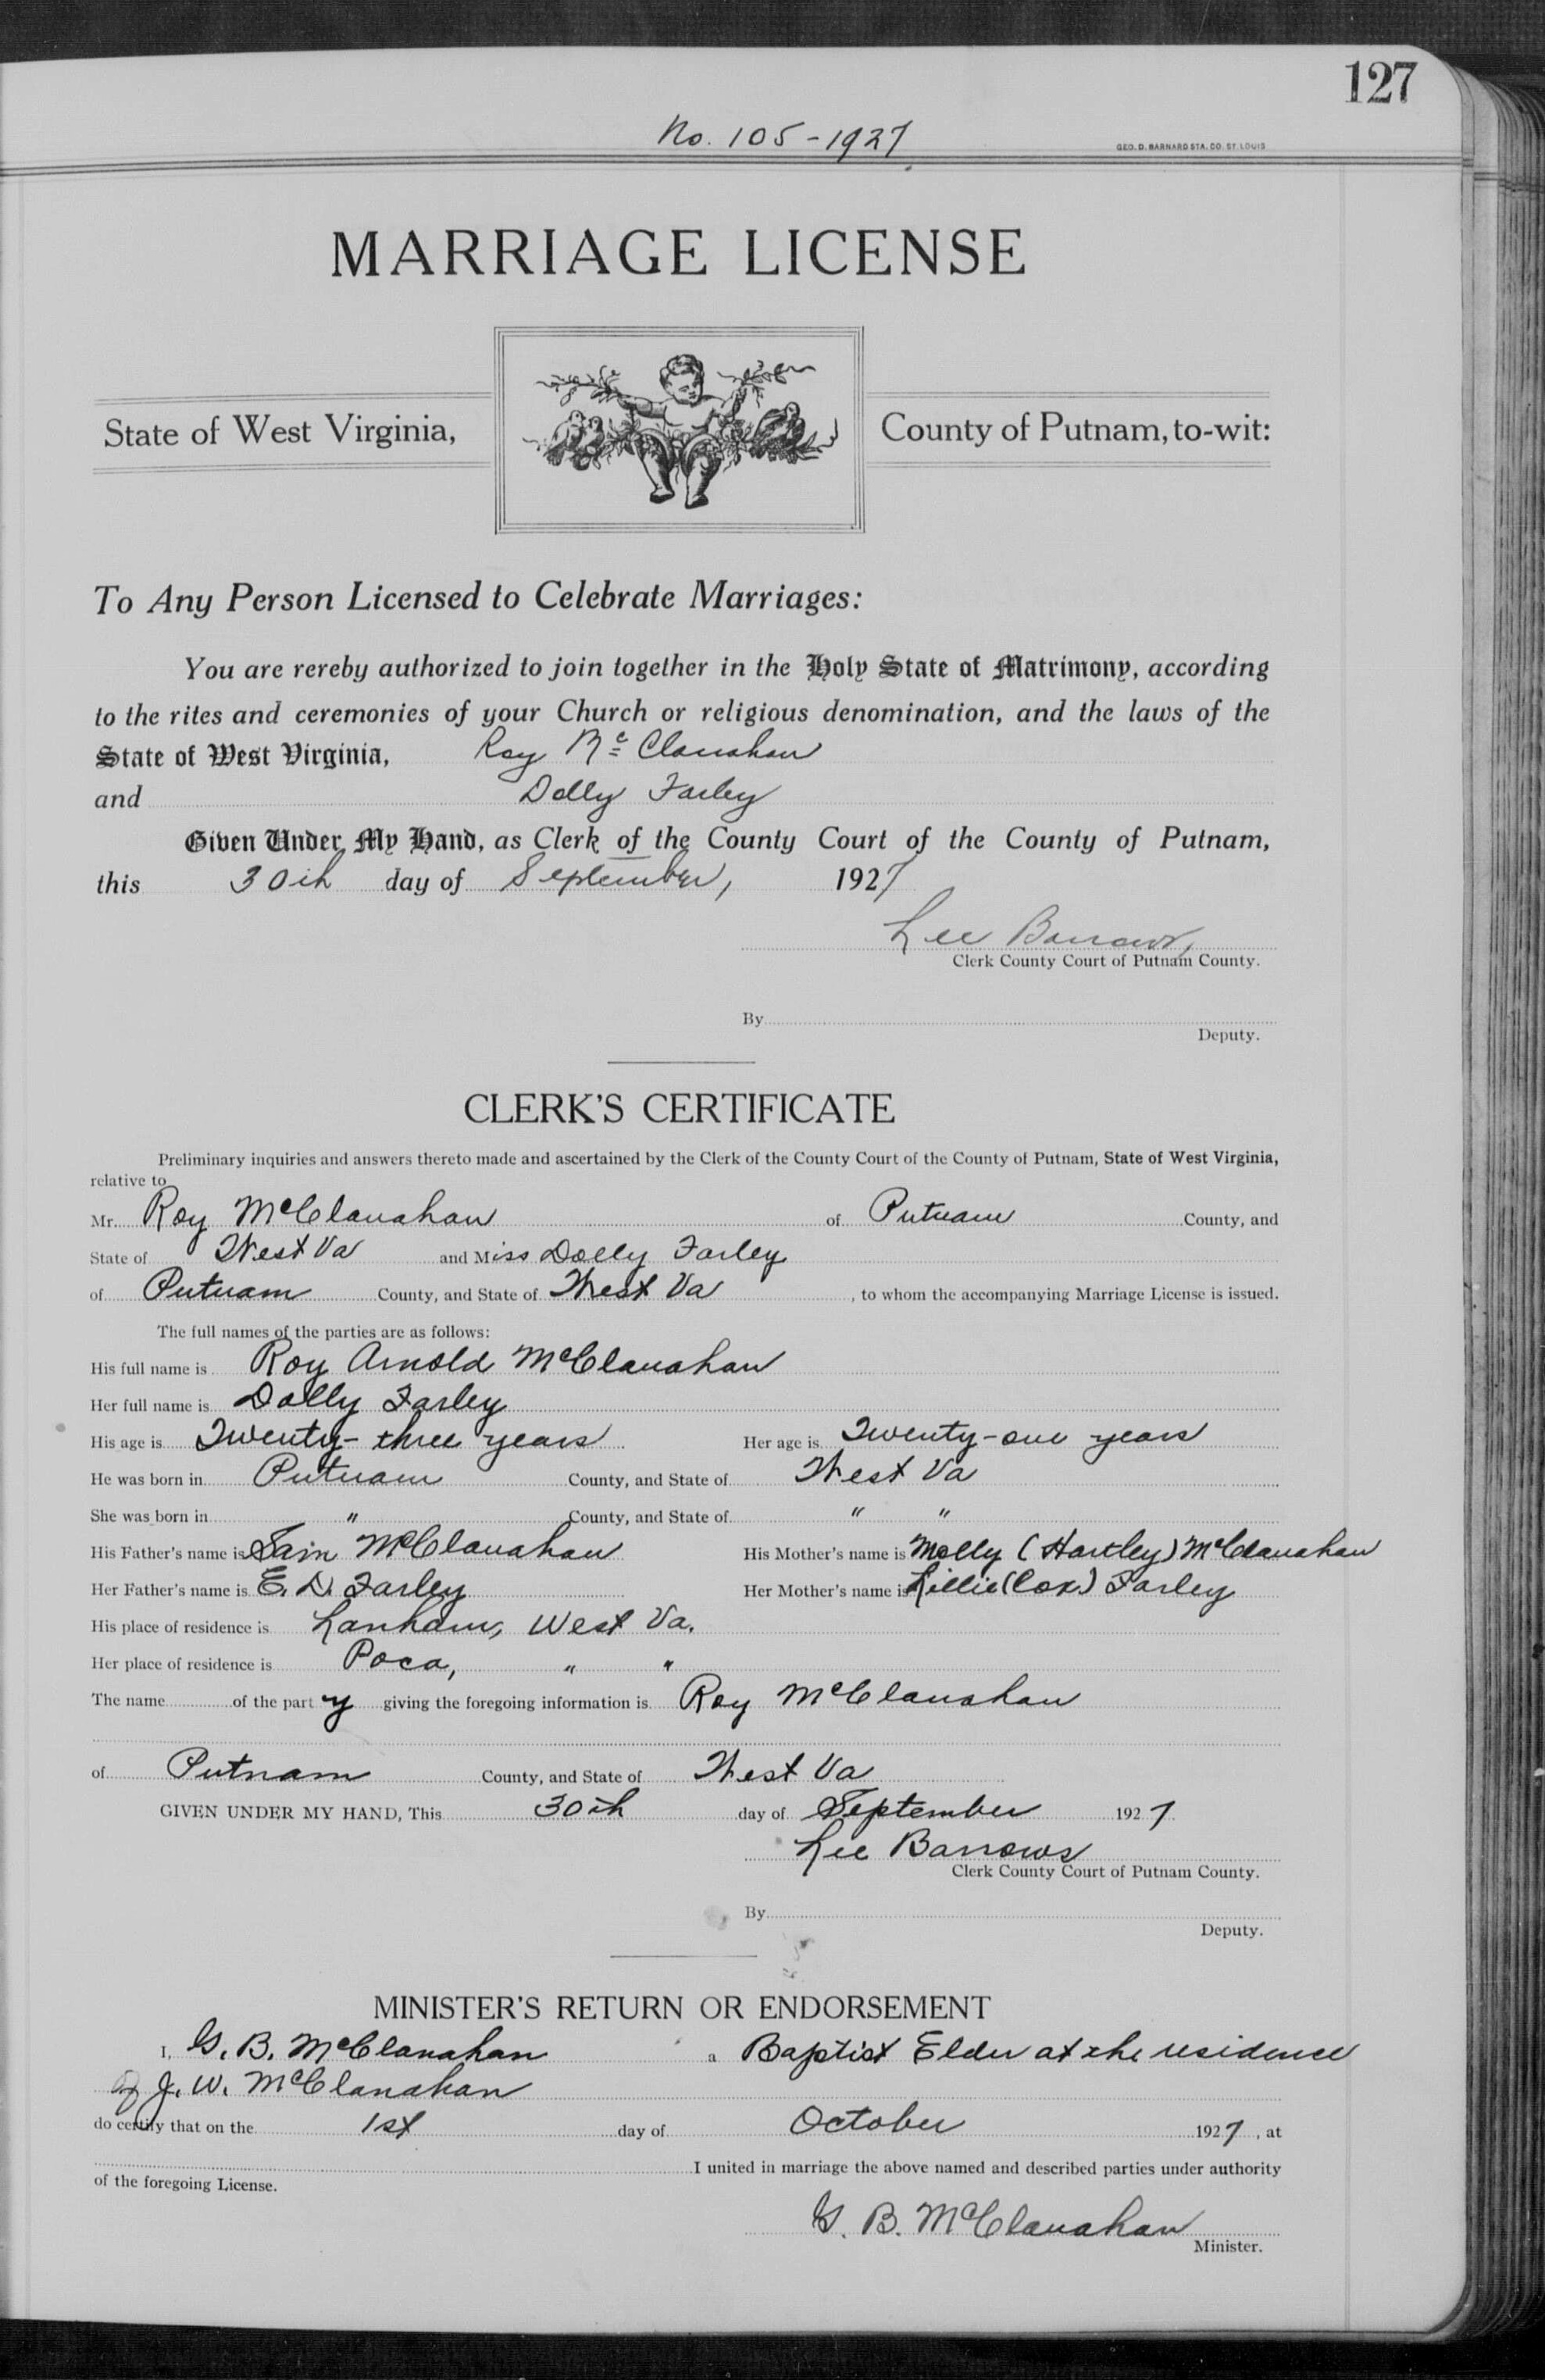 127
No. 105-1927
GEO. D. BARNARD STA. CO. ST. LOUIS
MARRIAGE LICENSE
State of West Virginia,
County of Putnam, to-wit:
To Any Person Licensed to Celebrate Marriages:
You are rereby authorized to join together in the Holy State of Matrimony, according
to the rites and ceremonies of your Church or religious denomination, and the laws of the
State of West Virginia, Roy McClanahan
and Dolly Farley
Given Under My Hand, as Clerk of the County Court of the County of Putnam,
this 30th day of September, 1927
Lee Barrows,
Clerk County Court of Putnam County.
By
Deputy.
CLERK'S CERTIFICATE
Preliminary inquiries and answers thereto made and ascertained by the Clerk of the County Court of the County of Putnam, State of West Virginia,
relative to
Mr. Roy McClanahan of Putnam County, and
State of West Va and Miss Dolly Farley
of Putnam County, and State of West Va, to whom the accompanying Marriage License is issued.
The full names of the parties are as follows:
His full name is Roy Arnold McClanahan
Her full name is Dolly Farley
His age is Twenty-three years Her age is Twenty-one years
He was born in Putnam County, and State of West Va
She was born in " County, and State of " "
His Father's name is Sam McClanahan His Mother's name is Molly (Hartley) McClanahan
Her Father's name is E. D. Farley Her Mother's name is Lillie (Cox) Farley
His place of residence is Lanham, West Va.
Her place of residence is Poca, " "
The name of the party giving the foregoing information is Roy McClanahan
of Putnam County, and State of West Va
GIVEN UNDER MY HAND, This 30th day of September 1927
Lee Barrows
Clerk County Court of Putnam County.
By
Deputy.
MINISTER'S RETURN OR ENDORSEMENT
I, G. B. McClanahan a Baptist Elder at the residence
of J. W. McClanahan
do certify that on the 1st day of October 1927, at
I united in marriage the above named and described parties under authority
of the foregoing License.
G. B. McClanahan
Minister.